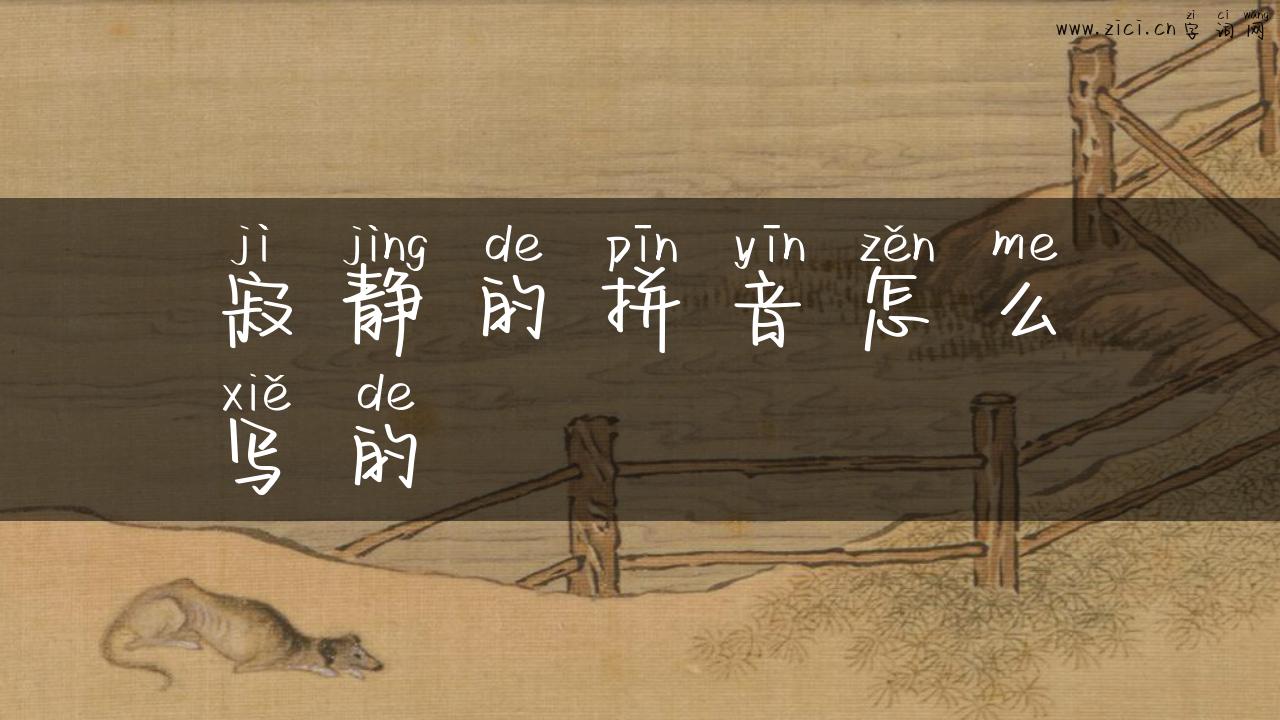 zì cí wǎng
www.zici.cn 字词网
jì jìng de pīn yīn zěn me
寂静的拼音怎么
xiě de
写的